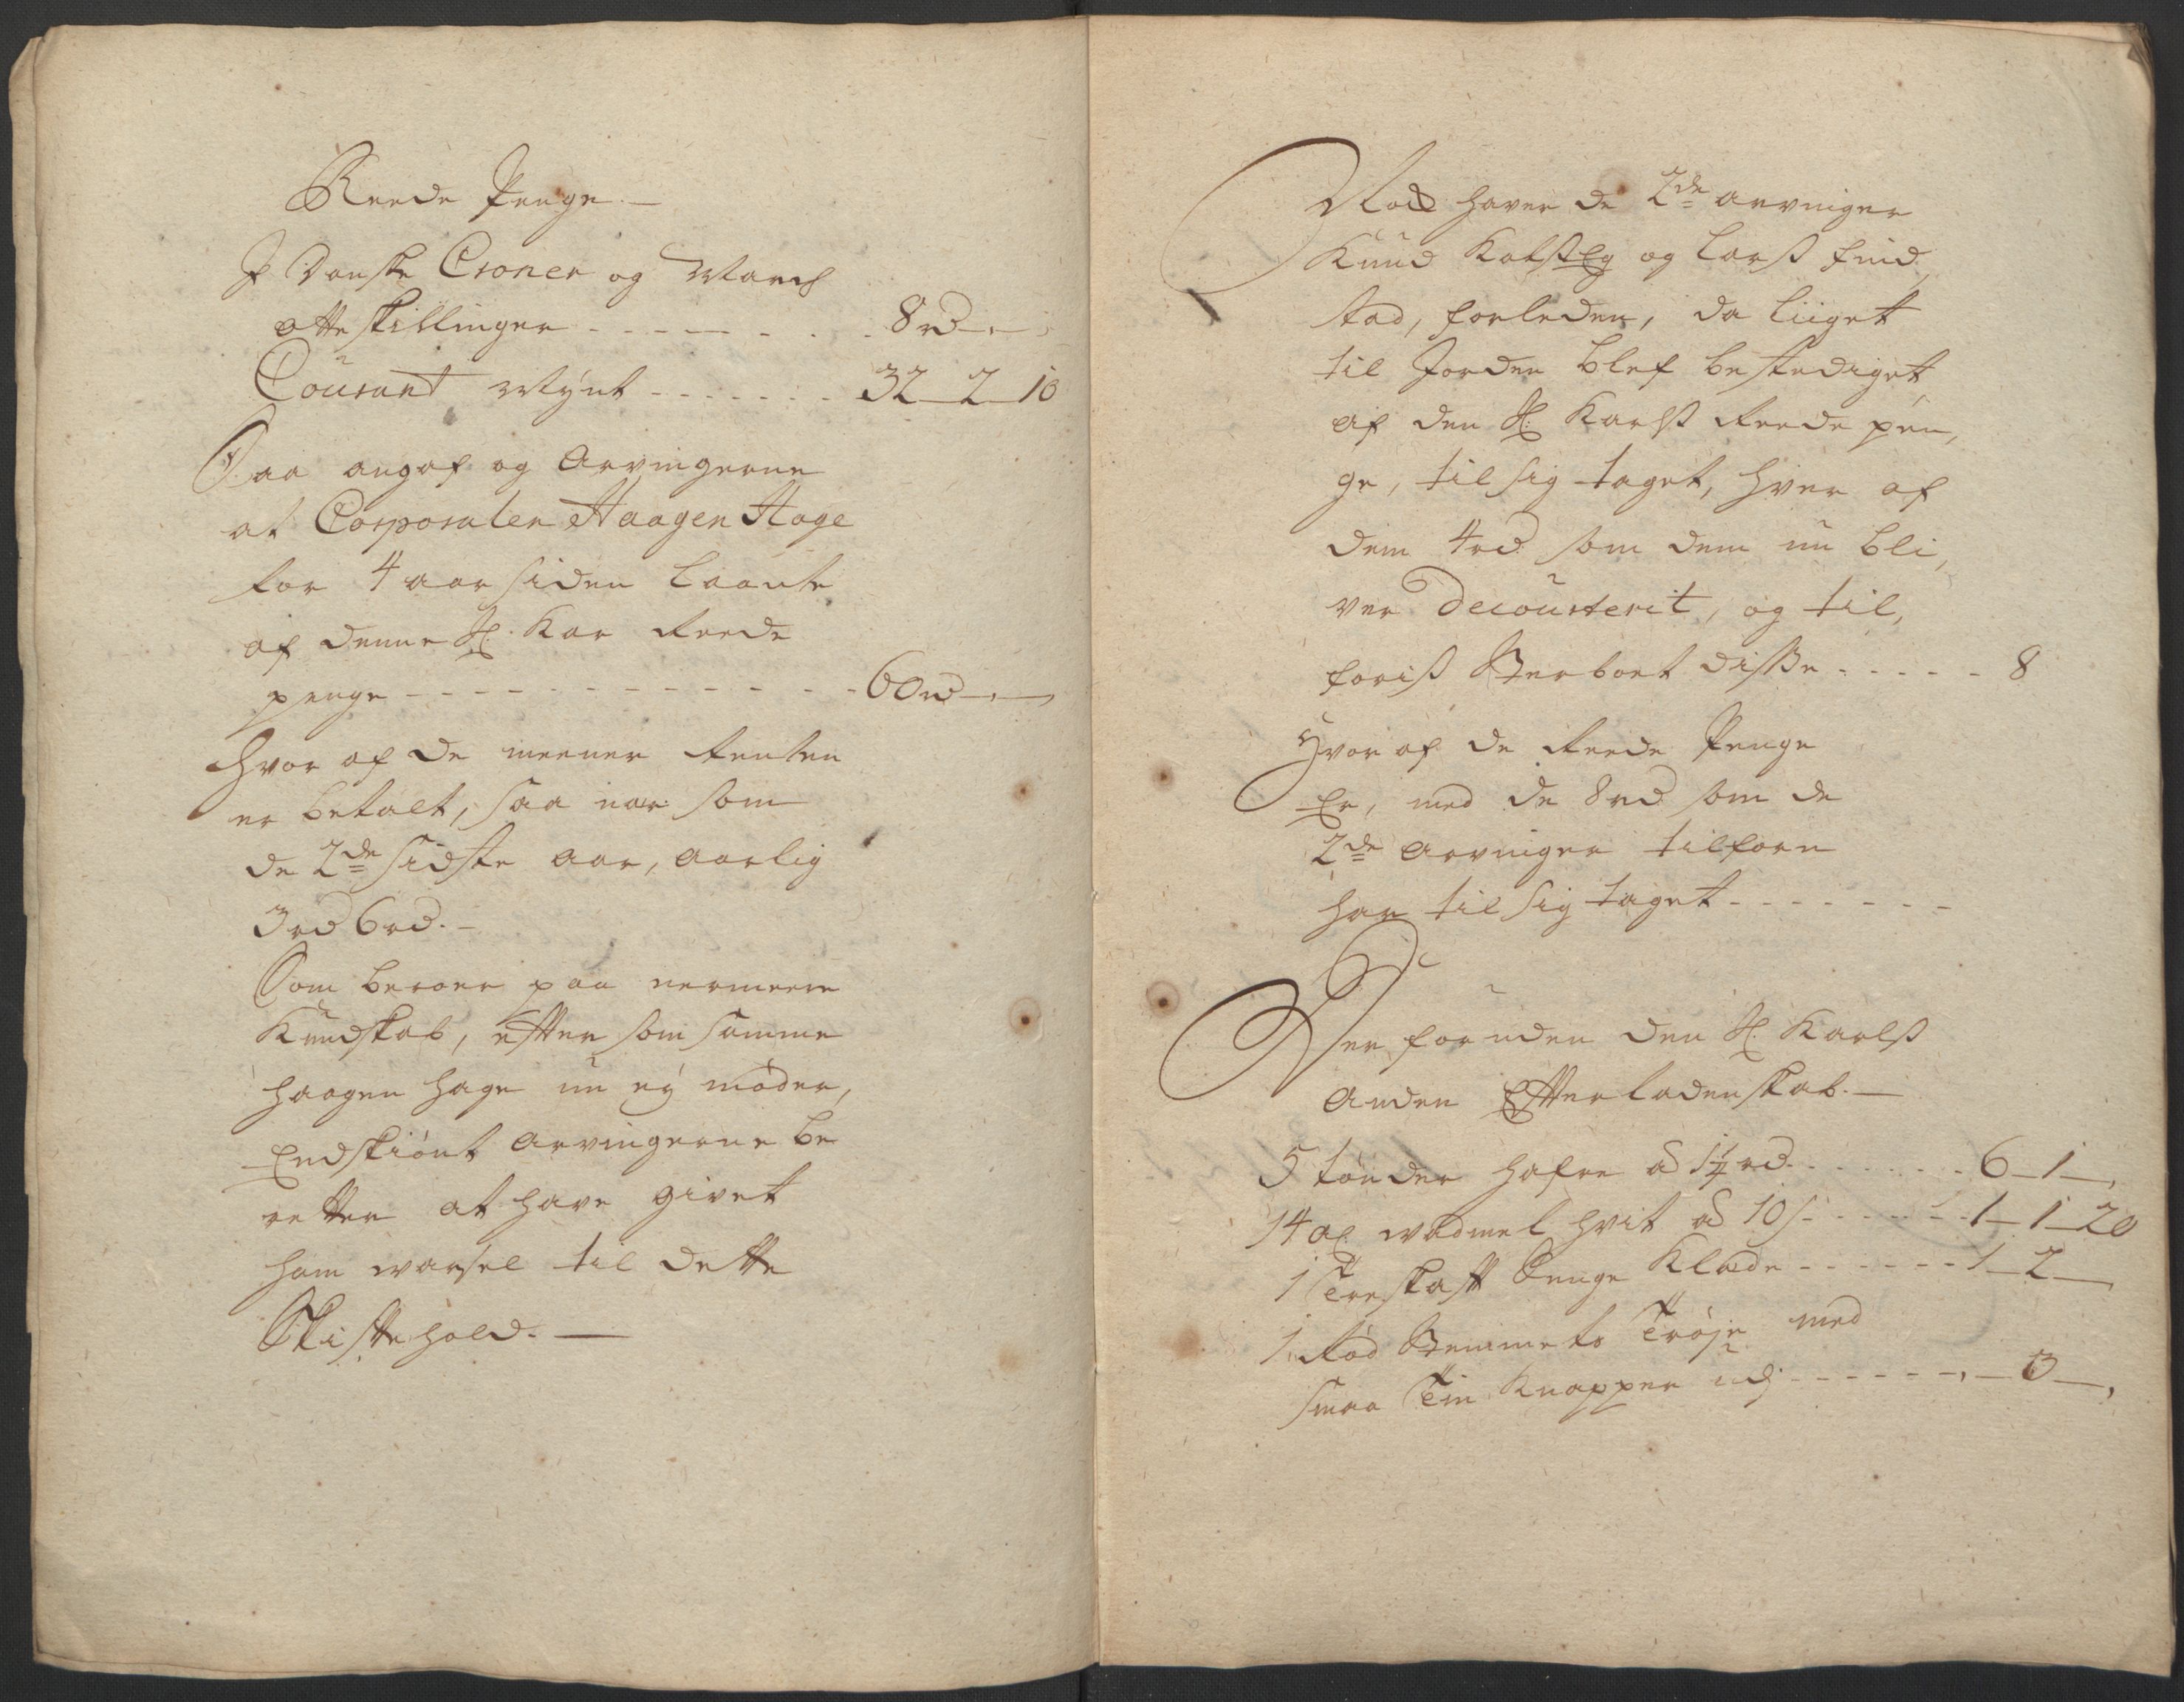 Reede Penge. —
J Danske Croner og March
otteskillinger - - - - - - - 8 rd - „ - „
Courant Mynt - - - - - - - 32 - 2 - 10
Saa angaf og Arvingerne
at Corporalen Haagen Hage
for 4 aar siden laante
af denne Sl. Kar Reede
penge - - - - - - - - - - - - 60 rd - „ - „
Hvor af de meener Renten
er betalt, saa nær som
de 2de sidste aar, aarlig
3 rd 6 rd. -
Som beroer paa nermere
Kundskab, efter som samme
Haagen Hage nu ey møder,
Endskiønt Arvingerne be
retter at have givet
ham warsel til dette
Skiftehold. —
Noch haver de 2de arvinger
Knud Kolst Eg og Lars find,
stad, forleden, da Liiget
til Jorden blef bestediget,
af den Sl. Karls Reede pen,
ge, til sig taget, hver af
dem 4 rd som dem nu bli,
ver Decourterit, og til,
foris Sterboet disse - - - - - 8
Hvor af de Reede Penge
Er, med de 8 rd som de
2de Arvinger tilforn
har til sig taget - - - - - - -
Der foruden den Sl. Karls
anden Efterladenskab. —
5 tønder hafre a 1¼ rd - - - - - - 6 - 1 - „
14 al. wadmel hvit a 10 s - - - - - - 1 - 1 - 20
1 Treskaft Senge Klæde - - - - - - 1 - 2 -
1 Rød Stemmets Trøje med
smaa Tin Knapper udj - - - - - - „ - 3 - „